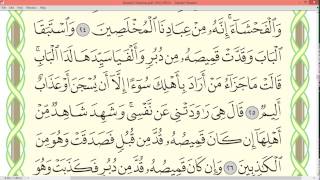 وَٱلْفَحْشَآءَ ۚ إِنَّهُۥ مِنْ عِبَادِنَا ٱلْمُخْلَصِينَ ٢٤ وَٱسْتَبَقَا
ٱلْبَابَ وَقَدَّتْ قَمِيصَهُۥ مِن دُبُرٍ وَأَلْفَيَا سَيِّدَهَا لَدَا ٱلْبَابِ ۚ
قَالَتْ مَا جَزَآءُ مَنْ أَرَادَ بِأَهْلِكَ سُوٓءًا إِلَّآ أَن يُسْجَنَ أَوْ عَذَابٌ
أَلِيمٌ ٢٥ قَالَ هِىَ رَٰوَدَتْنِى عَن نَّفْسِى ۚ وَشَهِدَ شَاهِدٌ مِّنْ
أَهْلِهَآ إِن كَانَ قَمِيصُهُۥ قُدَّ مِن قُبُلٍ فَصَدَقَتْ وَهُوَ مِنَ
ٱلْكَٰذِبِينَ ٢٦ وَإِن كَانَ قَمِيصُهُۥ قُدَّ مِن دُبُرٍ فَكَذَبَتْ وَهُوَ